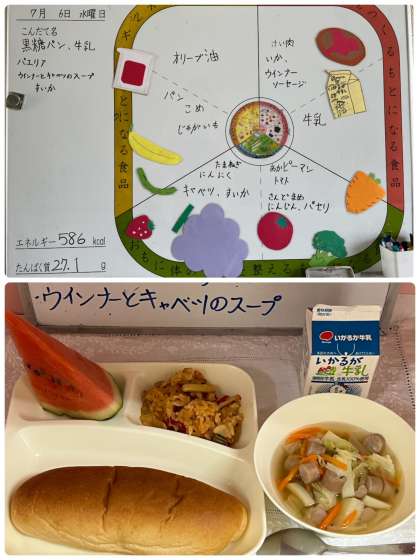 7月 6日 水曜日
こんだて名
黒糖パン、牛乳
パエリア
ウインナーとキャベツのスープ
すいか
エネルギー 586 kcal
たんぱく質 27.1 g
オリーブ油
パン
こめ
じゃがいも
けい肉
いか、
ウインナー
ソーセージ
牛乳
たまねぎ
にんにく
キャベツ、すいか
あかピーマン
トマト
さんどまめ
にんじん、パセリ
とになる食品
になる食品
える食
ウインナーとキャベツのスープ
いかるが牛乳
いかるが
牛乳